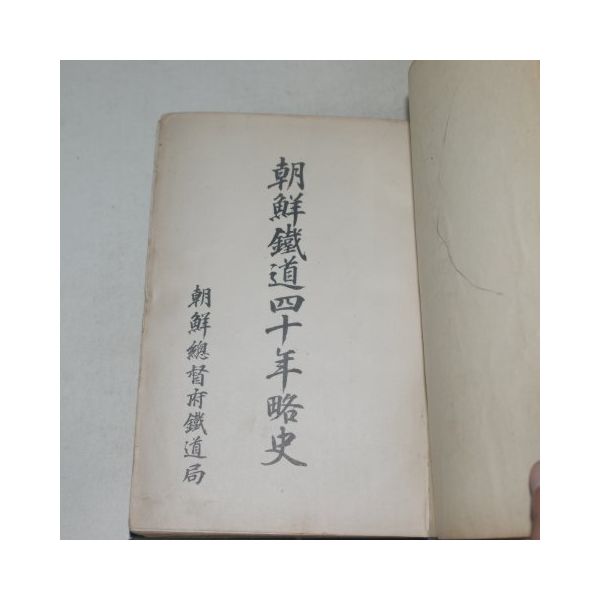 朝鮮鐵道四十年略史
朝鮮總督府鐵道局